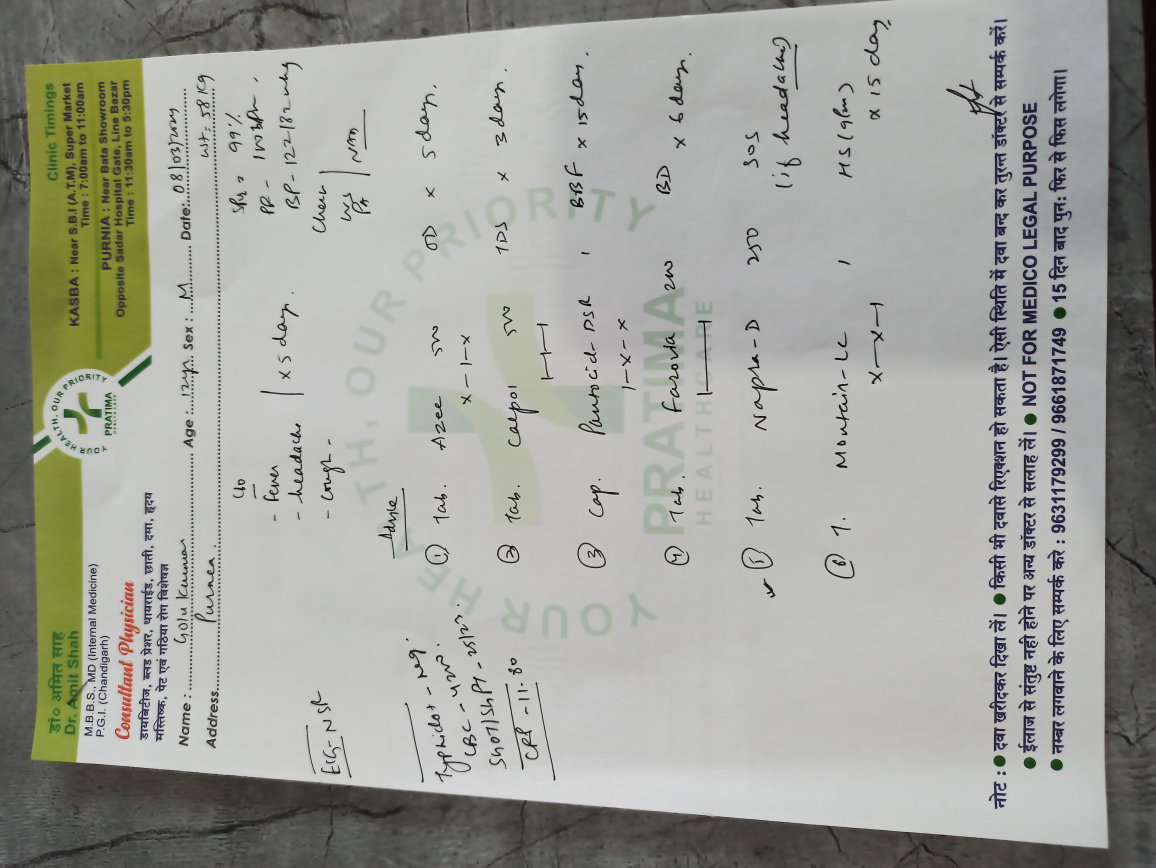 डॉ० अमित साह
Dr. Amit Shah
M.B.B.S., MD (Internal Medicine)
P.G.I. (Chandigarh)
Consultant Physician
डायबिटीज, ब्लड प्रेशर, थायराईड, छाती, दमा, हृदय
मस्तिष्क, पेट एवं गठिया रोग विशेषज्ञ
YOUR HEALTH, OUR PRIORITY
PRATIMA
HEALTHCARE
Clinic Timings
KASBA : Near S.B.I (A.T.M), Super Market
Time : 7:00am to 11:00am
PURNIA : Near Bata Showroom
Opposite Sadar Hospital Gate, Line Bazar
Time : 11:30am to 5:30pm
Name : Golu Kumar Age : 12yr. Sex : M Date: 08/03/2024
Address Purnea. Wt= 58 Kg
C/o
- Fever
- headache x 5 day.
- cough -
99%
PR -
BP - 122/82 mmhg
Chest
CVS
PA
ECG- NSR
Typhidot - Neg.
CBC - 4200.
SGOT/SGPT - 25/23.
CRP - 11.80
Advice
① Tab. Azee 500 OD x 5 day.
x-1-x
② Tab. Calpol 500 TDS x 3 day.
1-1-1
③ Cap. Pantocid-DSR 1 BBF x 15 day.
1-x-x
④ Tab. Farovia 200 BD x 6 day.
⑤ Tab. Napra-D 250 SOS
(if headache)
⑥ T. Montain-LC 1 HS (9pm)
x-x-1 x 15 day
YOUR HEALTH, OUR PRIORITY
PRATIMA
HEALTHCARE
नोट : ● दवा खरीदकर दिखा लें। ● किसी भी दवासे रिएक्शन हो सकता है। ऐसी स्थिति में दवा बन्द कर तुरन्त डॉक्टर से सम्पर्क करें।
● ईलाज से संतुष्ट नही होने पर अन्य डॉक्टर से सलाह लें। ● NOT FOR MEDICO LEGAL PURPOSE
● नम्बर लगवाने के लिए सम्पर्क करे : 9631179299 / 9661871749 ● 15 दिन बाद पुन: फिर से फिस लगेगा।